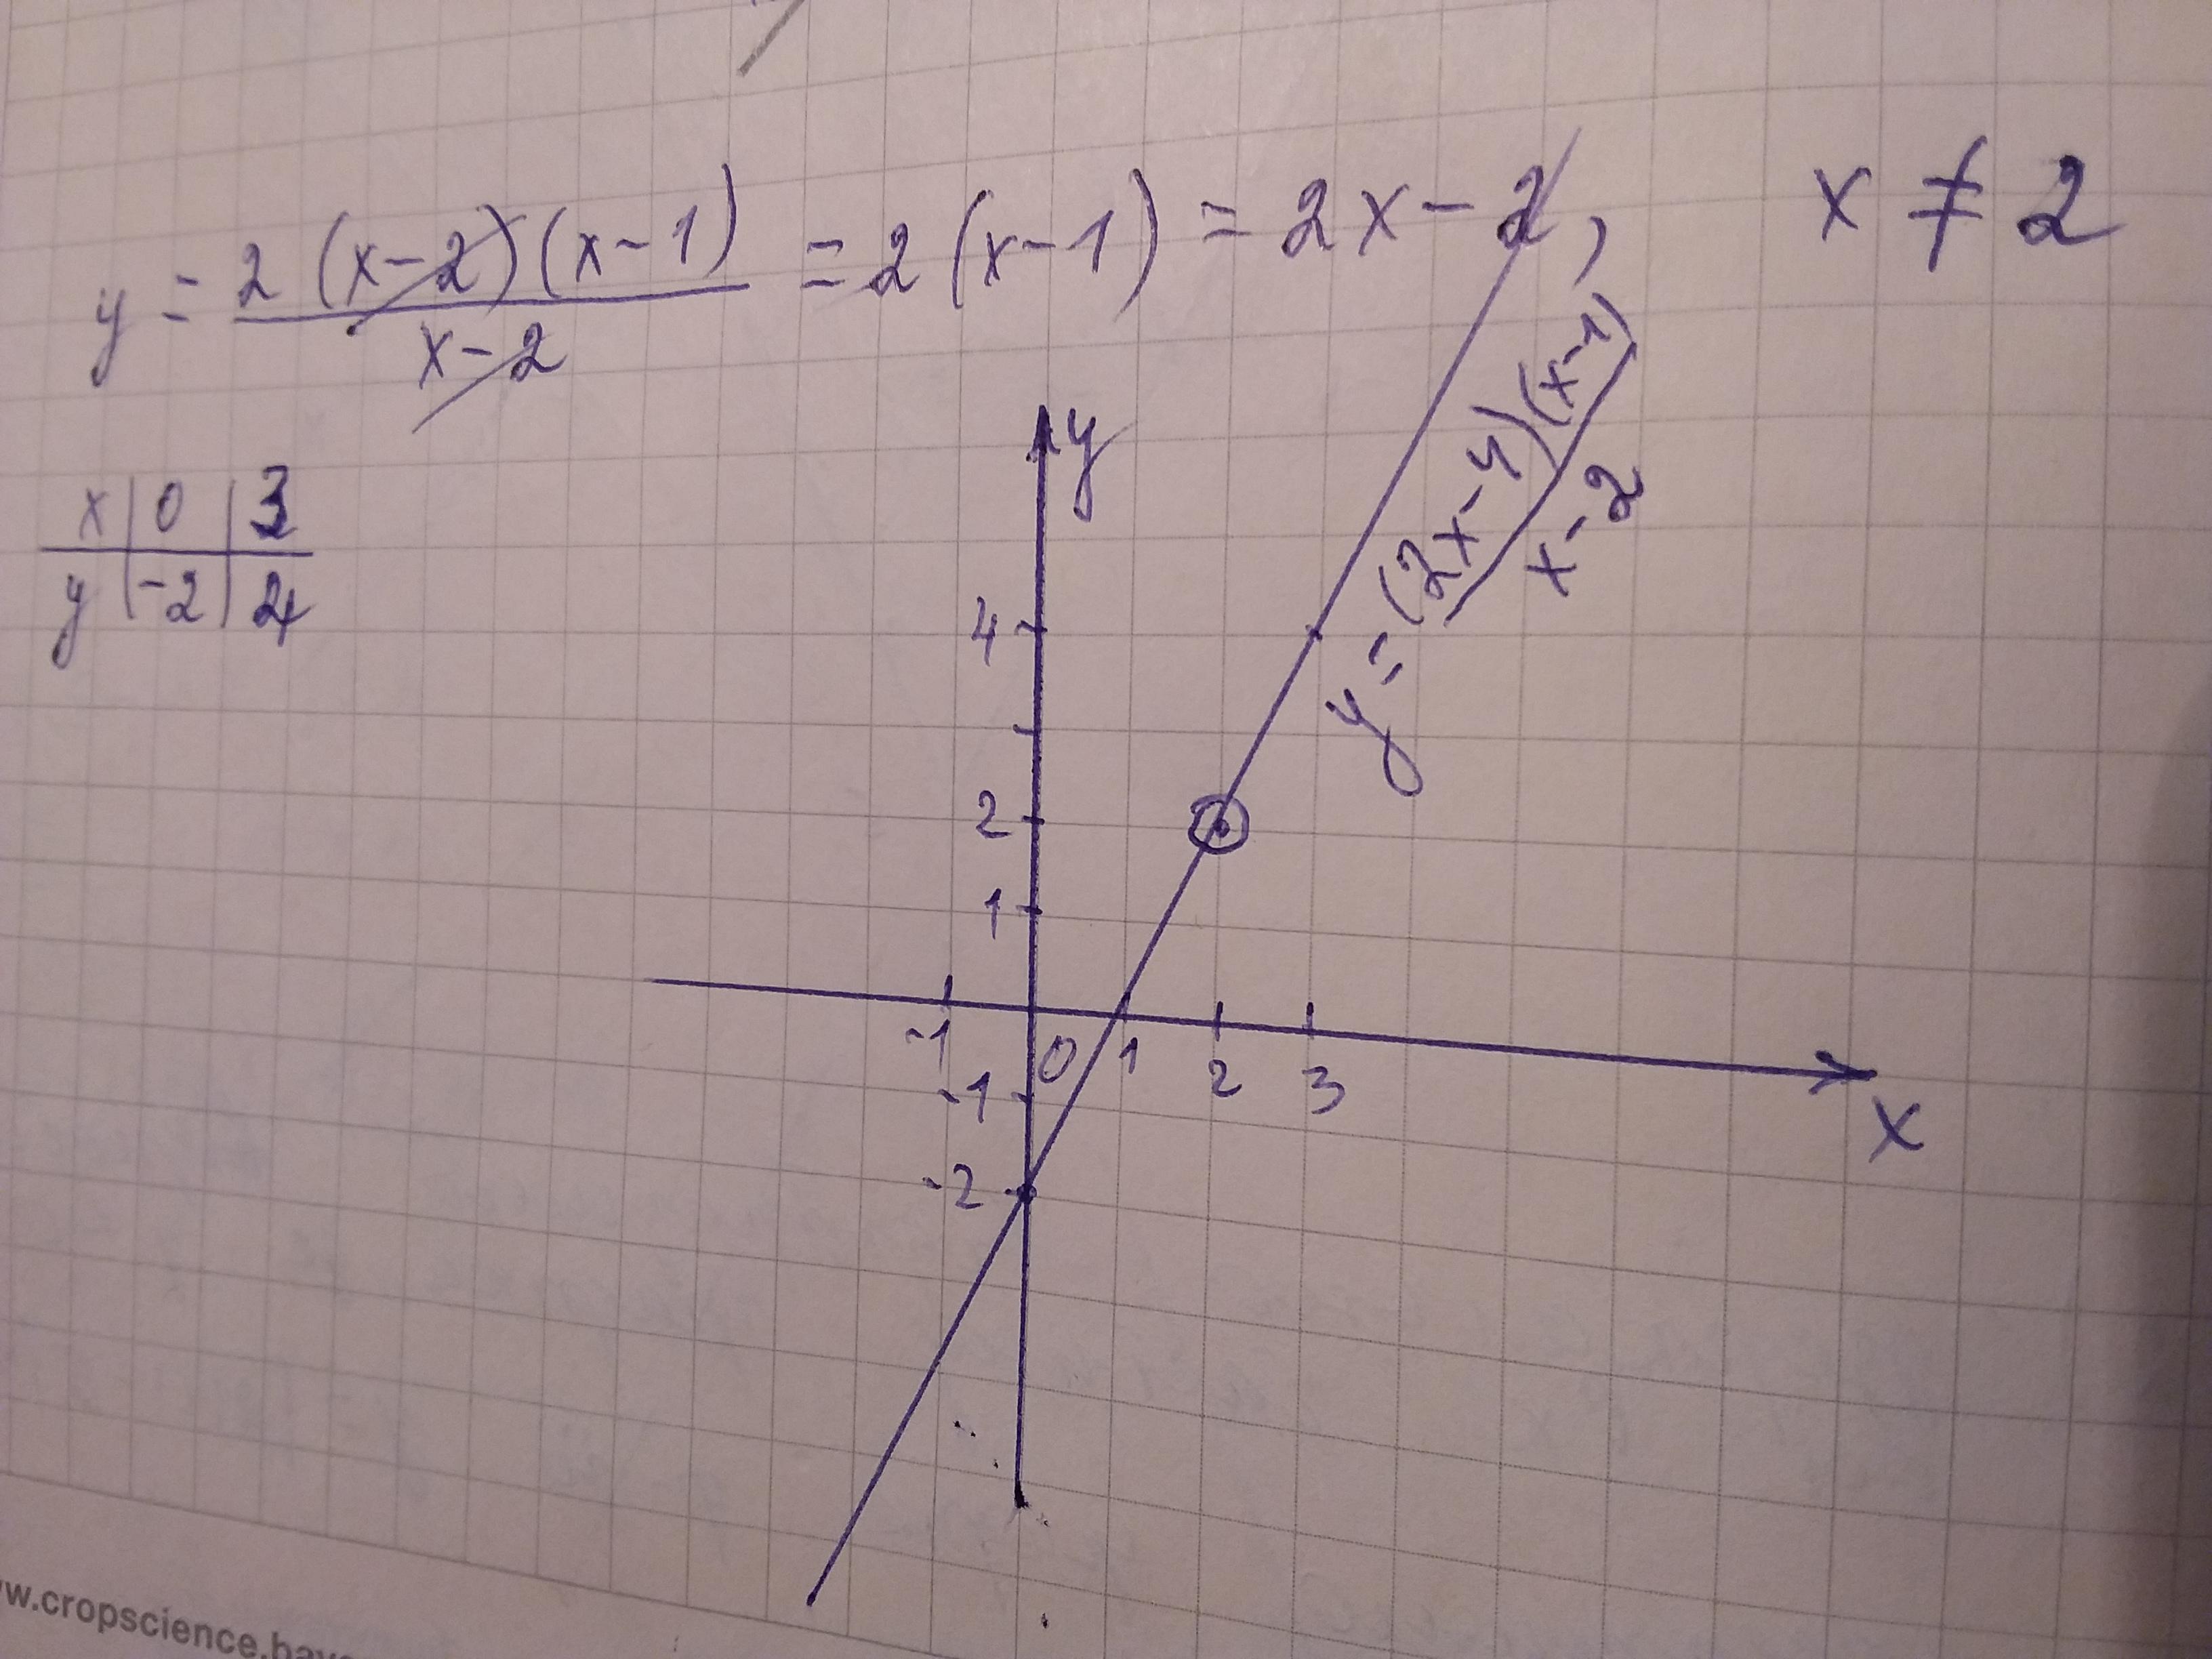 y = 2(x-2)(x-1) / x-2 = 2(x-1) = 2x-2, x ≠ 2
x | 0 | 3
y | -2 | 4
y
y = (2x-4)(x-1) / x-2
4
2
1
-1 0 1 2 3
x
-1
-2
w.cropscience.baye